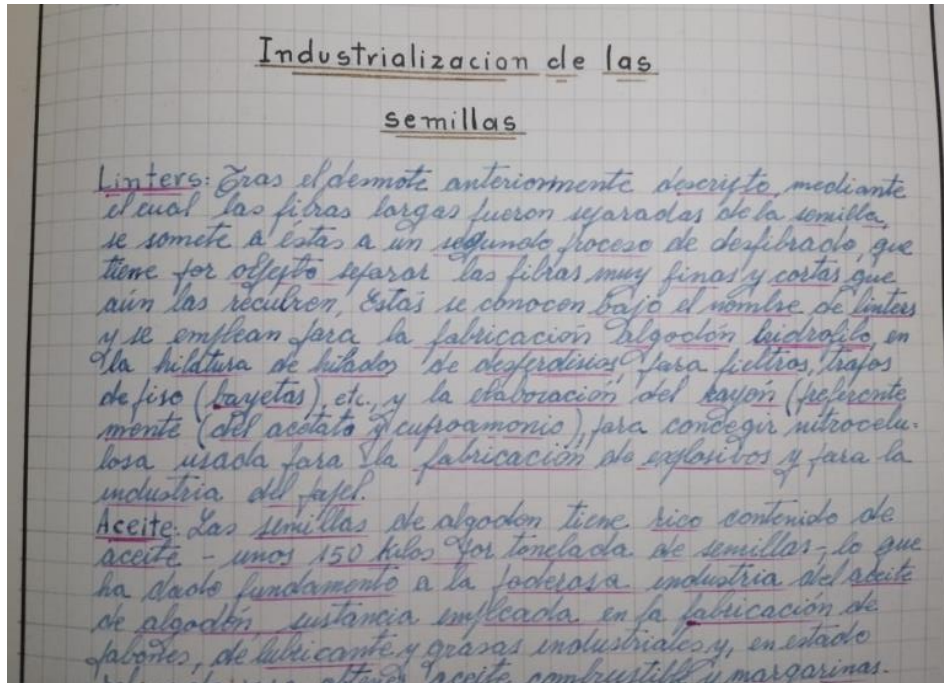 Industrializacion de las
semillas
Linters: Tras el desmote anteriormente descripto, mediante
el cual las fibras largas fueron separadas de la semilla,
se somete a éstas a un segundo proceso de desfibrado, que
tiene por objeto separar las fibras muy finas y cortas que
aún las recubren, Estas se conocen bajo el nombre de linters
y se emplean para la fabricación algodón hidrofilo, en
la hilatura de hilados de desperdisios, para fieltros, trapos
de piso (bayetas), etc., y la elaboración del rayón (preferente
mente (del acetato y cuproamonio), para concegir nitrocelu-
losa usada para la fabricación de explosibos y para la
industria del papel.
Aceite: Las semillas de algodon tiene rico contenido de
aceite - unos 150 kilos por tonelada de semillas -, lo que
ha dado fundamento a la poderosa industria del aceite
de algodón sustancia empleada en la fabricación de
jabones, de lubricante y grasas industriales y, en estado
aceite combustible y margarinas.